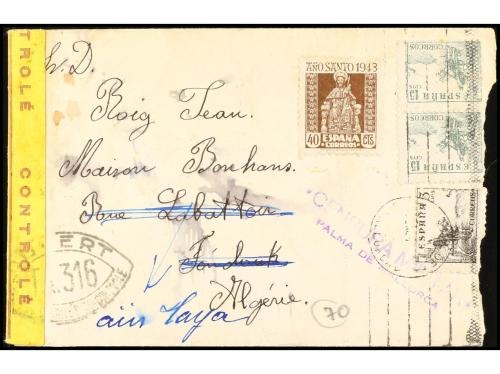 TROLÉ CONTROLÉ
D.
Roig Jean.
Maison Borhans.
Rue Labattoir
Fondouk
Algérie.
70
AÑO SANTO 1943
40 ESPAÑA CTS
CORREOS
15 CTS
ESPAÑA
CORREOS
15 CTS
ESPAÑA
CORREOS
5
ESPAÑA
CORREOS
PALMA DE MALLORCA
ERT
.316